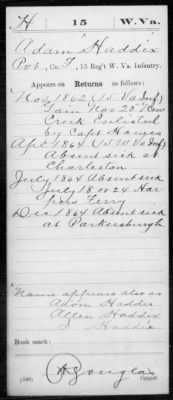 H 15 W. Va.
Adam Haddix
Pvt., Co. F, 15 Reg't W. Va. Infantry.
Appears on Returns as follows:
Nov 1862 (15 Va Inf)
Gain Nov 25 New
Creek Enlisted
by Capt
Apr 1864 (15 W Va Inf)
Absent sick at
Charleston
July 1864 Absent sick
July 18 or 24 Har
pers Ferry
Dec 1864 Absent sick
at Parkersburgh
Name appears also as
Adam Haddix
Allen Haddix
J Haddix
Book mark:
(546)
Copyist.